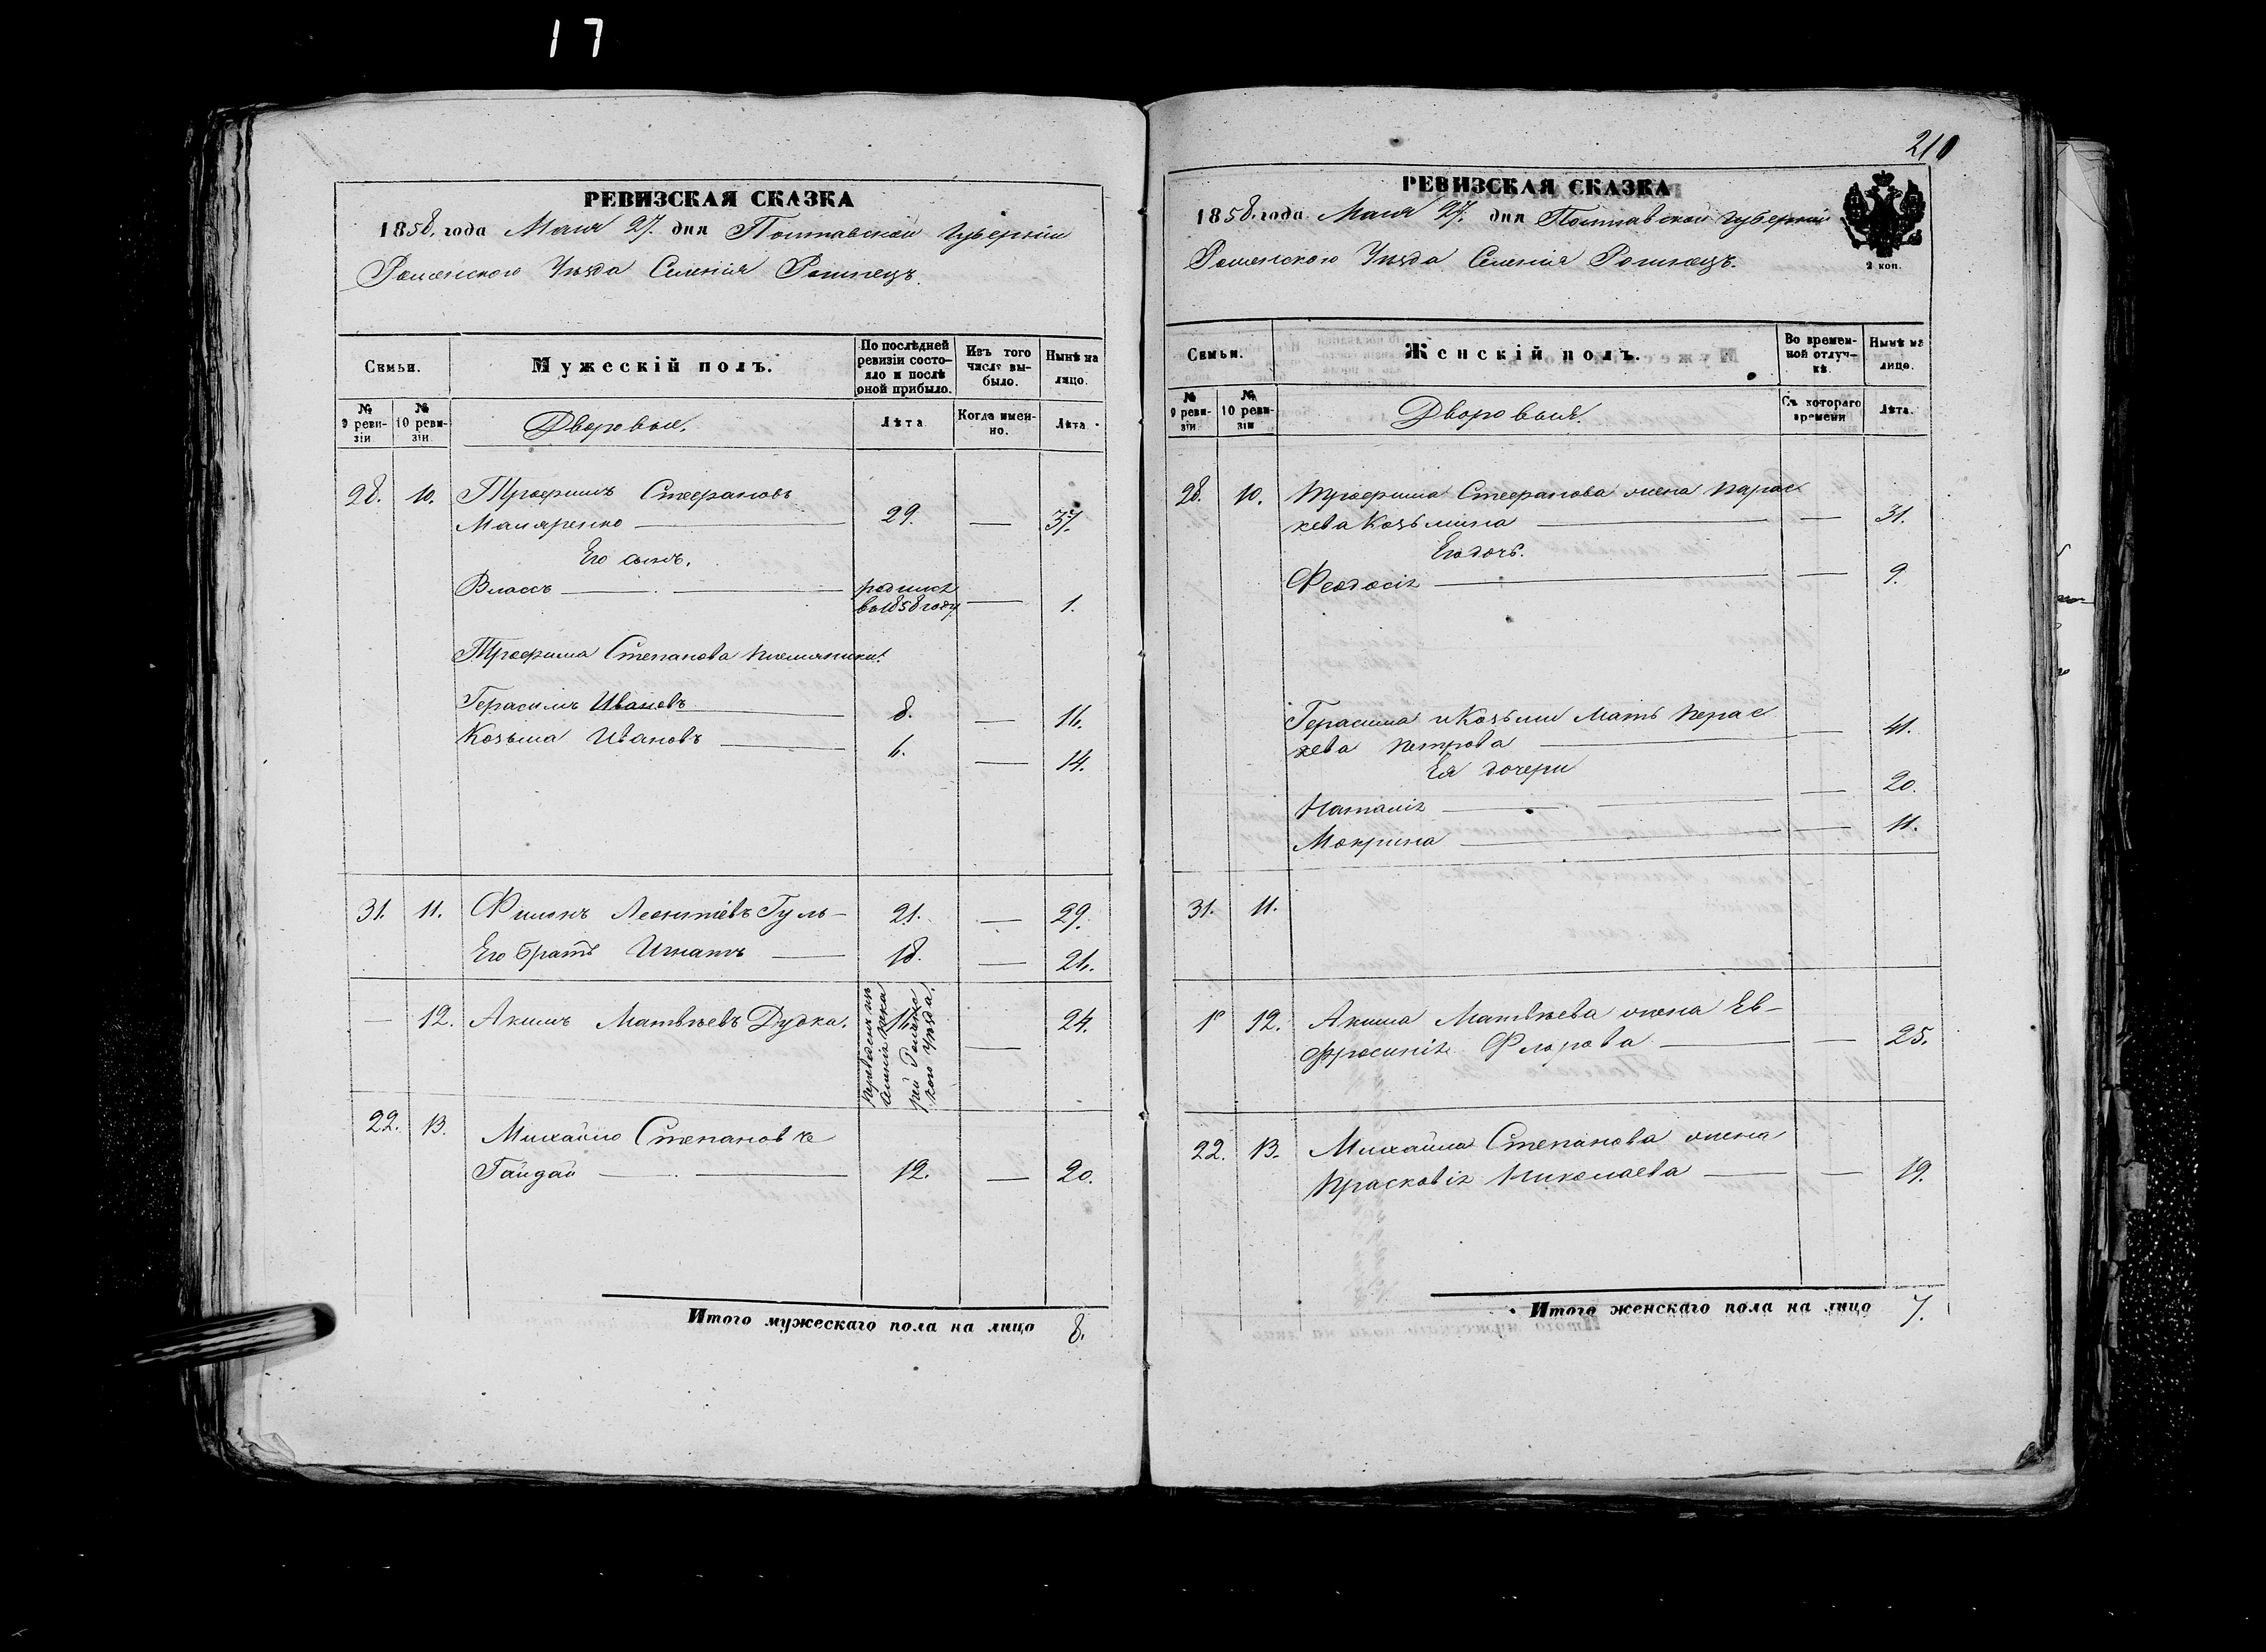 17
РЕВИЗСКАЯ СКАЗКА
1858. года Мая 27. дня Полтавской Губерніи
Роменского Уѣзда Селенія
Семьи.
Мужескій полъ.
По послѣдней ревизіи состояло и послѣ оной прибыло.
Изъ того числа выбыло.
Нынѣ на лицо.
№ 9 ревизіи
№ 10 ревизіи
Дворовые.
Лѣта
Когда именно.
Лѣта.
28. 10. Трофимъ Стефановъ
Маляренко — 29. — 37.
Его сынъ.
Власъ — родился
в 1858 году — 1.
Трофима Степанова племянники:
Герасимъ Ивановъ — 8. — 16.
Козьма Ивановъ — 6. — 14.
31. 11. Филонъ Леонтьевъ Гуль — 21. — 29.
Его братъ Игнатъ — 18. — 26.
— 12. Акимъ Матвѣевъ Дудка. 16. — 24.
22. 13. Михайло Степановъ
Гайдай — 12. — 20.
Итого мужескаго пола на лицо 8.
210
РЕВИЗСКАЯ СКАЗКА
1858. года Мая 27. дня Полтавской Губерніи
Роменского Уѣзда Селенія
2 коп.
Семьи.
Женскій полъ.
Во временной отлучкѣ.
Нынѣ на лицо.
№ 9 ревизіи
№ 10 ревизіи
Дворовыя.
Съ котораго времени
Лѣта.
28. 10. Трофима Стефанова жена Парас
кева Козьмина — — 31.
Его дочь.
Феодосія — — 9.
Герасима и Козьмы Мать Перас
кева Петрова — — 41.
Ея дочери
Наталія — — 20.
Мокрина — — 11.
31. 11.
12. Акима Матвѣева жена Ев-
фросинія Флорова — — 25.
22. 13. Михайла Степанова жена
Прасковія Николаева — — 19.
Итого женскаго пола на лицо 7.